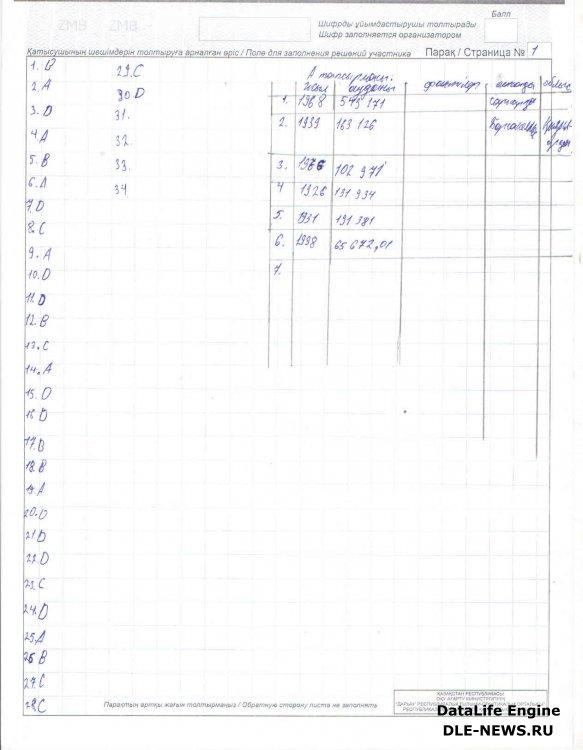 ZMB ZMB
Балл
Шифрды ұйымдастырушы толтырады
Шифр заполняется организатором
Қатысушының шешімдерін толтыруға арналған өріс / Поле для заполнения решений участника
Парақ / Страница № 1
1. B
2. A
3. D
4 A
5. B
6. A
7. D
8. C
9. A
10. D
11. D
12. B
13. C
14. A
15. D
16 D
17. B
18. B
19. A
20. D
21 D
22. D
23. C
24. D
25. A
26 B
27. C
28. C
29. C
30 D
31.
32.
33.
34
А тапсырмасы:
жылы ауданы
1. 1968 545 171
2. 1939 163 126
3. 1976 102 971
4 1926 131 934
5. 1931 191 381
6. 1998 65 672,01
7.
Парақтың артқы жағын толтырмаңыз / Обратную сторону листа не заполнять
ҚАЗАҚСТАН РЕСПУБЛИКАСЫ
ОҚУ-АҒАРТУ МИНИСТРЛІГІНІҢ
DataLife Engine
DLE-NEWS.RU